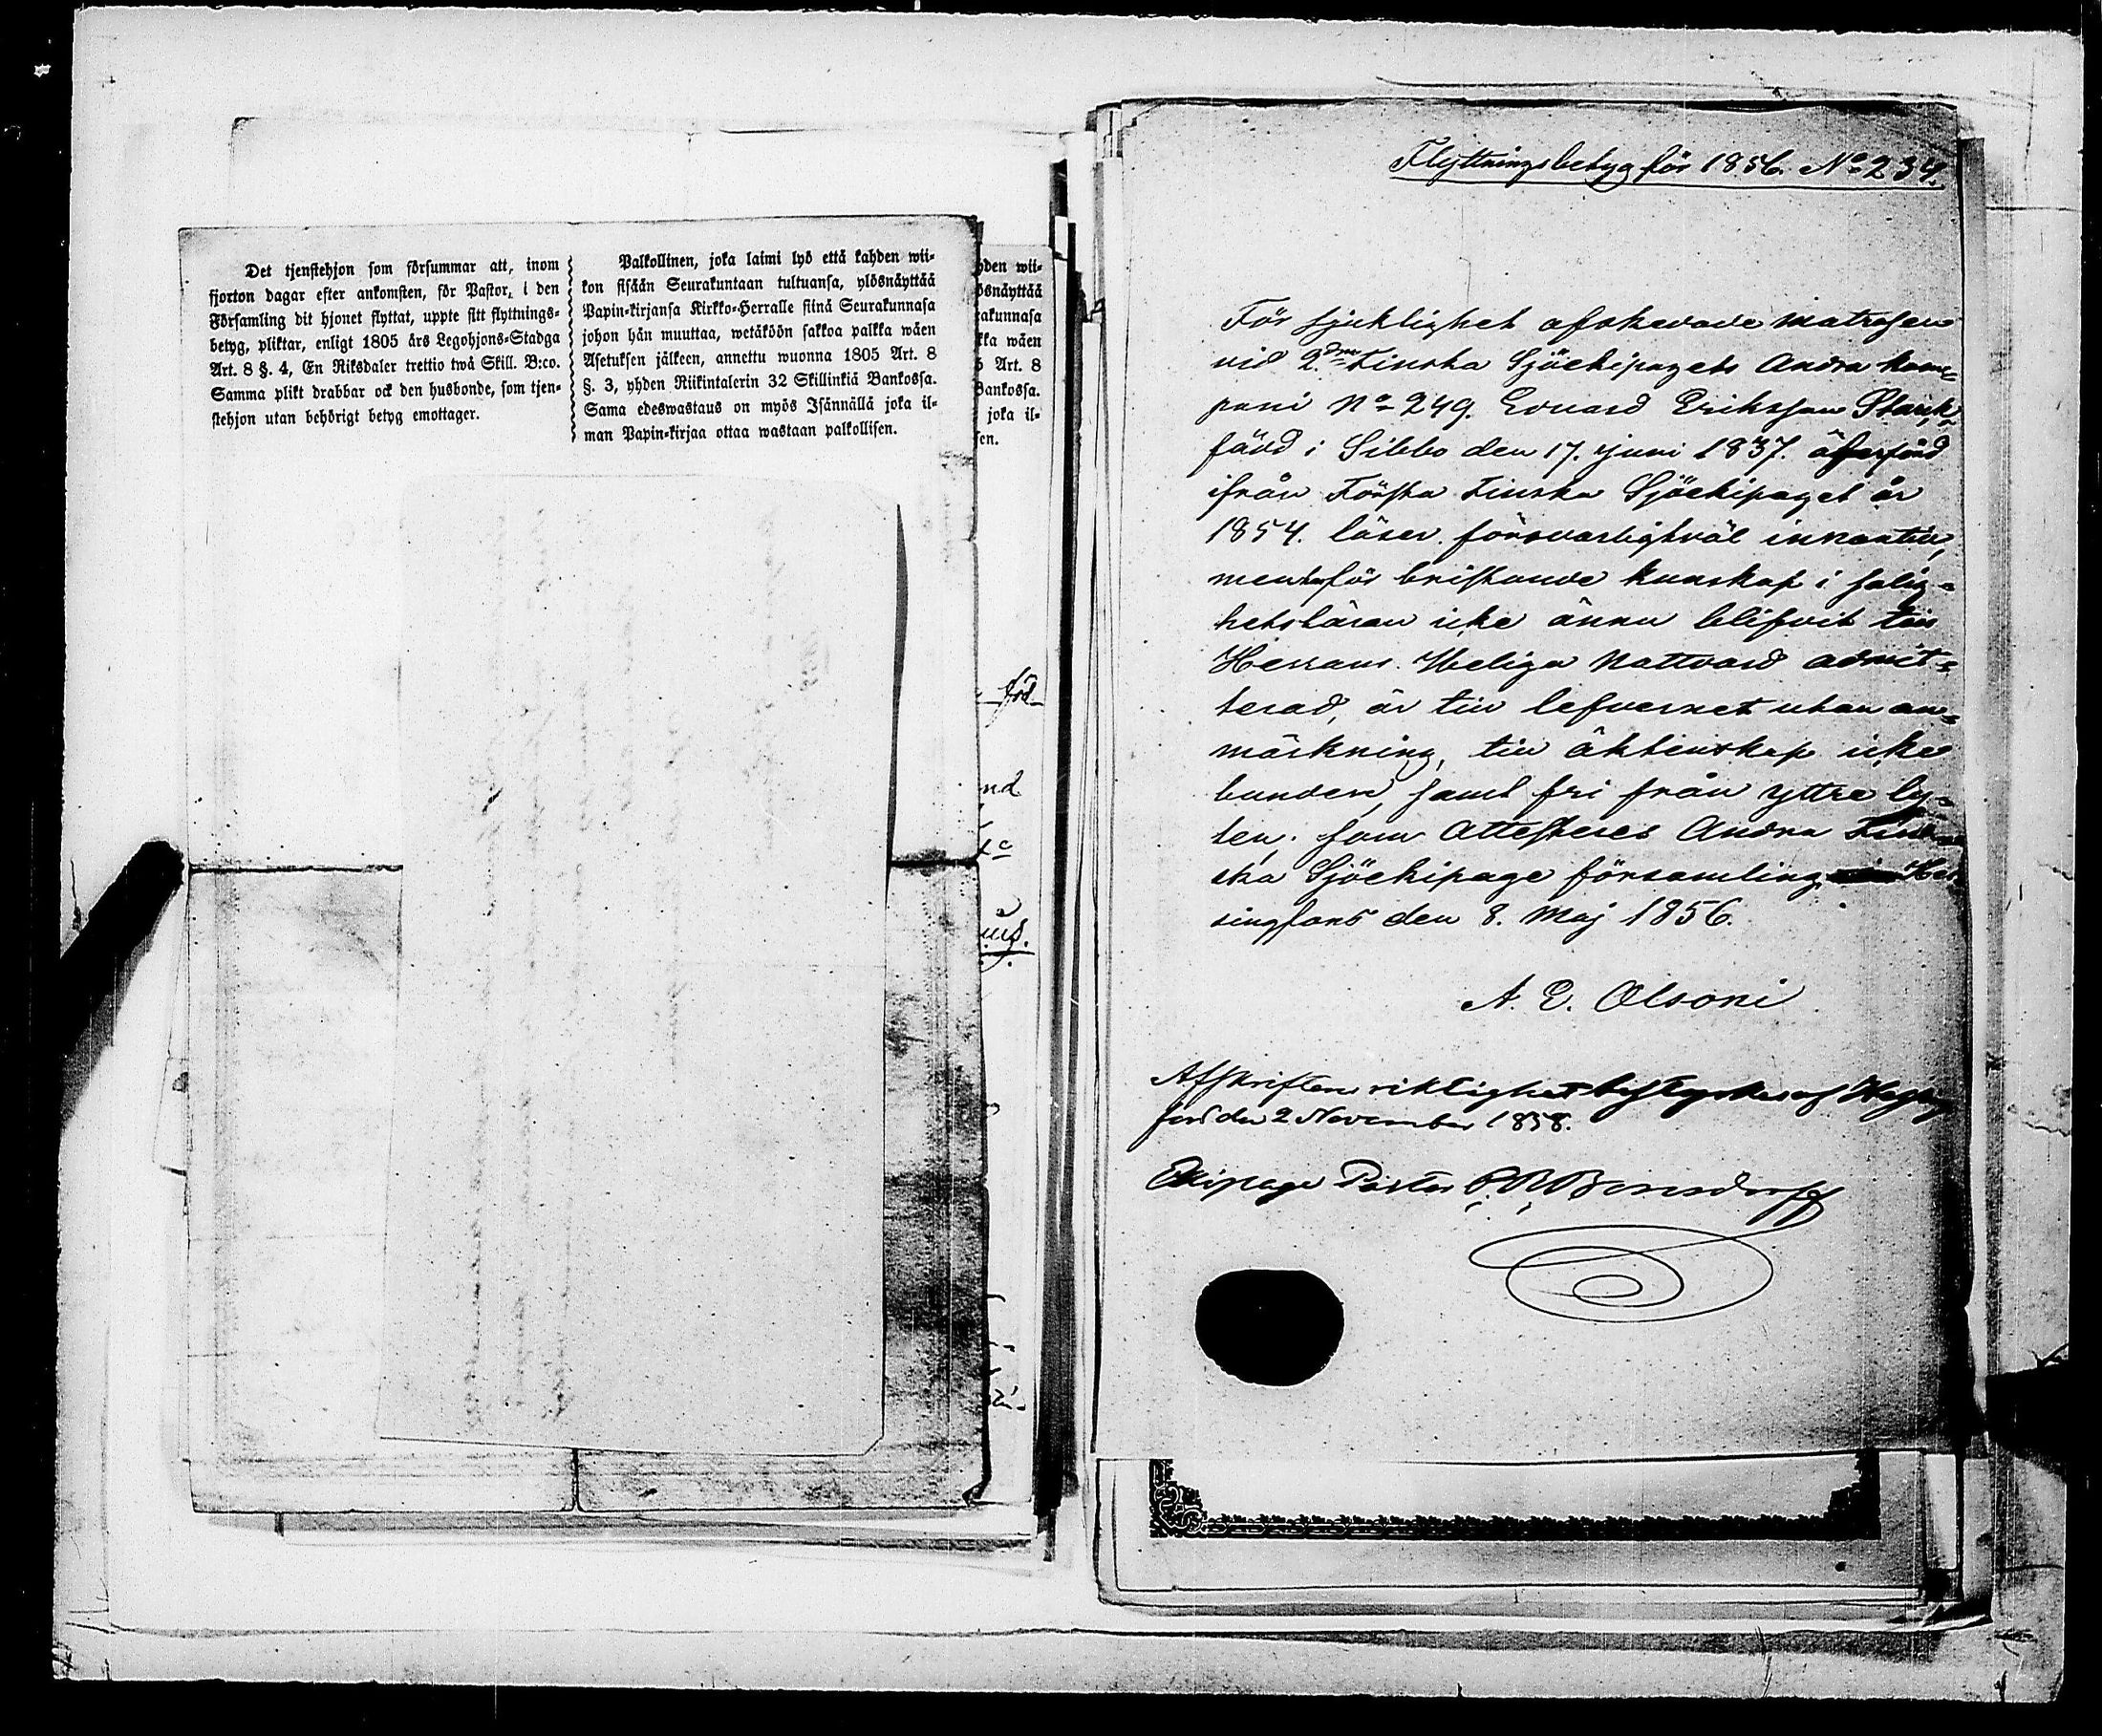 Det tjenstehjon som försummar att, inom
fjorton dagar efter ankomsten, för Pastor, i den
Församling dit hjonet flyttat, uppte sitt flyttnings-
betyg, pliktar, enligt 1805 års Legohjons-Stadga
Art. 8 §. 4, En Riksdaler trettio twå Skill. B:co.
Samma plikt drabbar ock den husbonde, som tjen-
stehjon utan behörigt betyg emottager.
Palkollinen, joka laimi lyö että kahden wii-
kon sisään Seurakuntaan tultuansa, ylösnäyttää
Papin-kirjansa Kirkko-Herralle siinä Seurakunnasa
johon hän muuttaa, wetäköön sakkoa palkka wäen
Asetuksen jälkeen, annettu wuonna 1805 Art. 8
§. 3, yhden Riikintalerin 32 Skillinkiä Bankossa.
Sama edeswastaus on myös Isännällä joka il-
man Papin-kirjaa ottaa wastaan palkollisen.
hden wii-
ösnäyttää
rakunnasa
kka wäen
5 Art. 8
Bankossa.
joka il-
sen.
född
nd
Flyttningsbetyg för 1856. No 234.
För sjuklighet afskedade matrosen
vid 2dra Finska Sjöekipagets Andra kom-
pani No 249. Eduard Eriksson Stark,
född i Sibbo den 17. Juni 1837. öfverförd
ifrån Första Finska Sjöekipaget år
1854. läser försvarligtväl innantill,
men har för bristande kunskap i salig-
hetsläran icke ännu blifvit till
Herrans Heliga Nattvard admit-
terad, är till lefvernet utan an-
märkning, till äktenskap icke
bunden, samt fri från yttre ly-
ten. som Attesteres Andra Fin-
ska Sjöekipage församling Hel-
singfors den 8. Maj 1856.
A. E. Olsoni
Afskriftens riktighet bestyrkes af Helsing
fors den 2 November 1858.
Ekipage Pastor